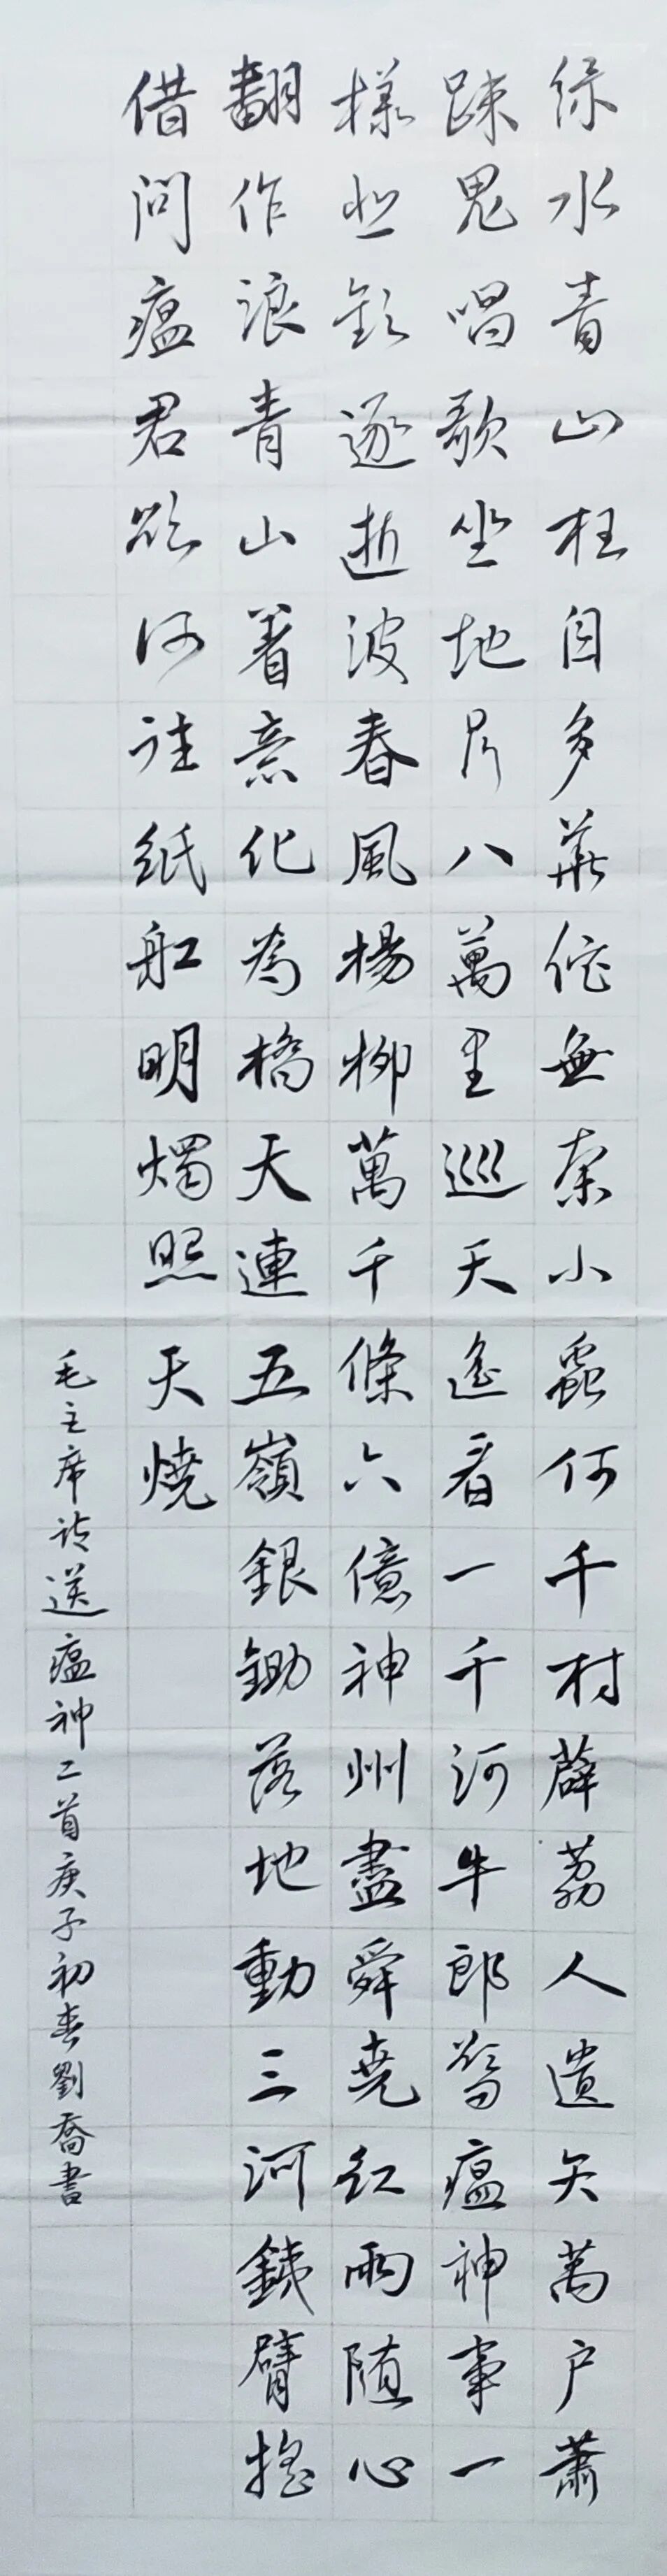 綠水青山枉自多華佗無奈小蟲何千村薜荔人遺矢萬户蕭
踈鬼唱歌坐地日行八萬里巡天遙看一千河牛郎欲問瘟神事一
樣悲歡逐逝波春風楊柳萬千條六億神州盡舜堯紅雨随心
翻作浪青山着意化為橋天連五嶺銀鋤落地動三河銕臂搖
借問瘟君欲何往紙舡明燭照天燒
毛主席詩送瘟神二首庚子初春劉喬書